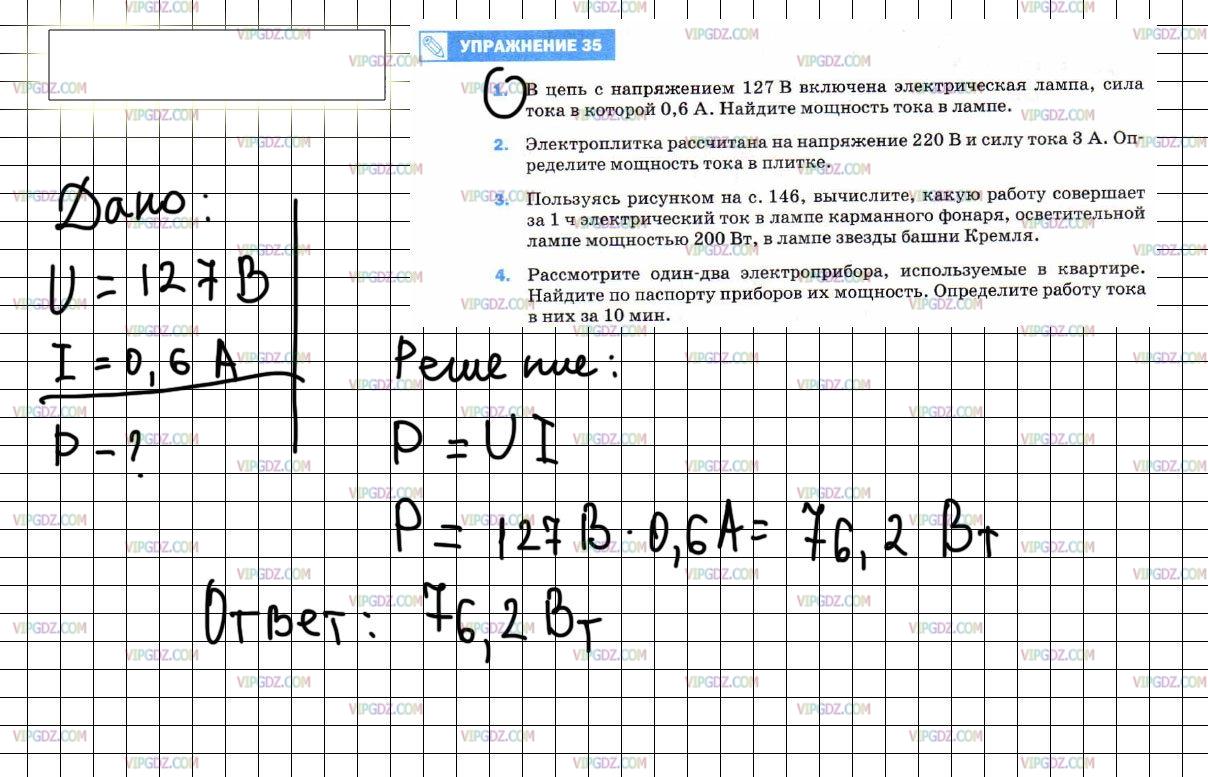 УПРАЖНЕНИЕ 35
1. В цепь с напряжением 127 В включена электрическая лампа, сила
тока в которой 0,6 А. Найдите мощность тока в лампе.
2. Электроплитка рассчитана на напряжение 220 В и силу тока 3 А. Оп-
ределите мощность тока в плитке.
3. Пользуясь рисунком на с. 146, вычислите, какую работу совершает
за 1 ч электрический ток в лампе карманного фонаря, осветительной
лампе мощностью 200 Вт, в лампе звезды башни Кремля.
4. Рассмотрите один-два электроприбора, используемые в квартире.
Найдите по паспорту приборов их мощность. Определите работу тока
в них за 10 мин.
Дано:
U = 127 В
I = 0,6 А
P - ?
Решение:
P = U I
P = 127 В · 0,6 А = 76,2 Вт
Ответ: 76,2 Вт
VIPGDZ.COM